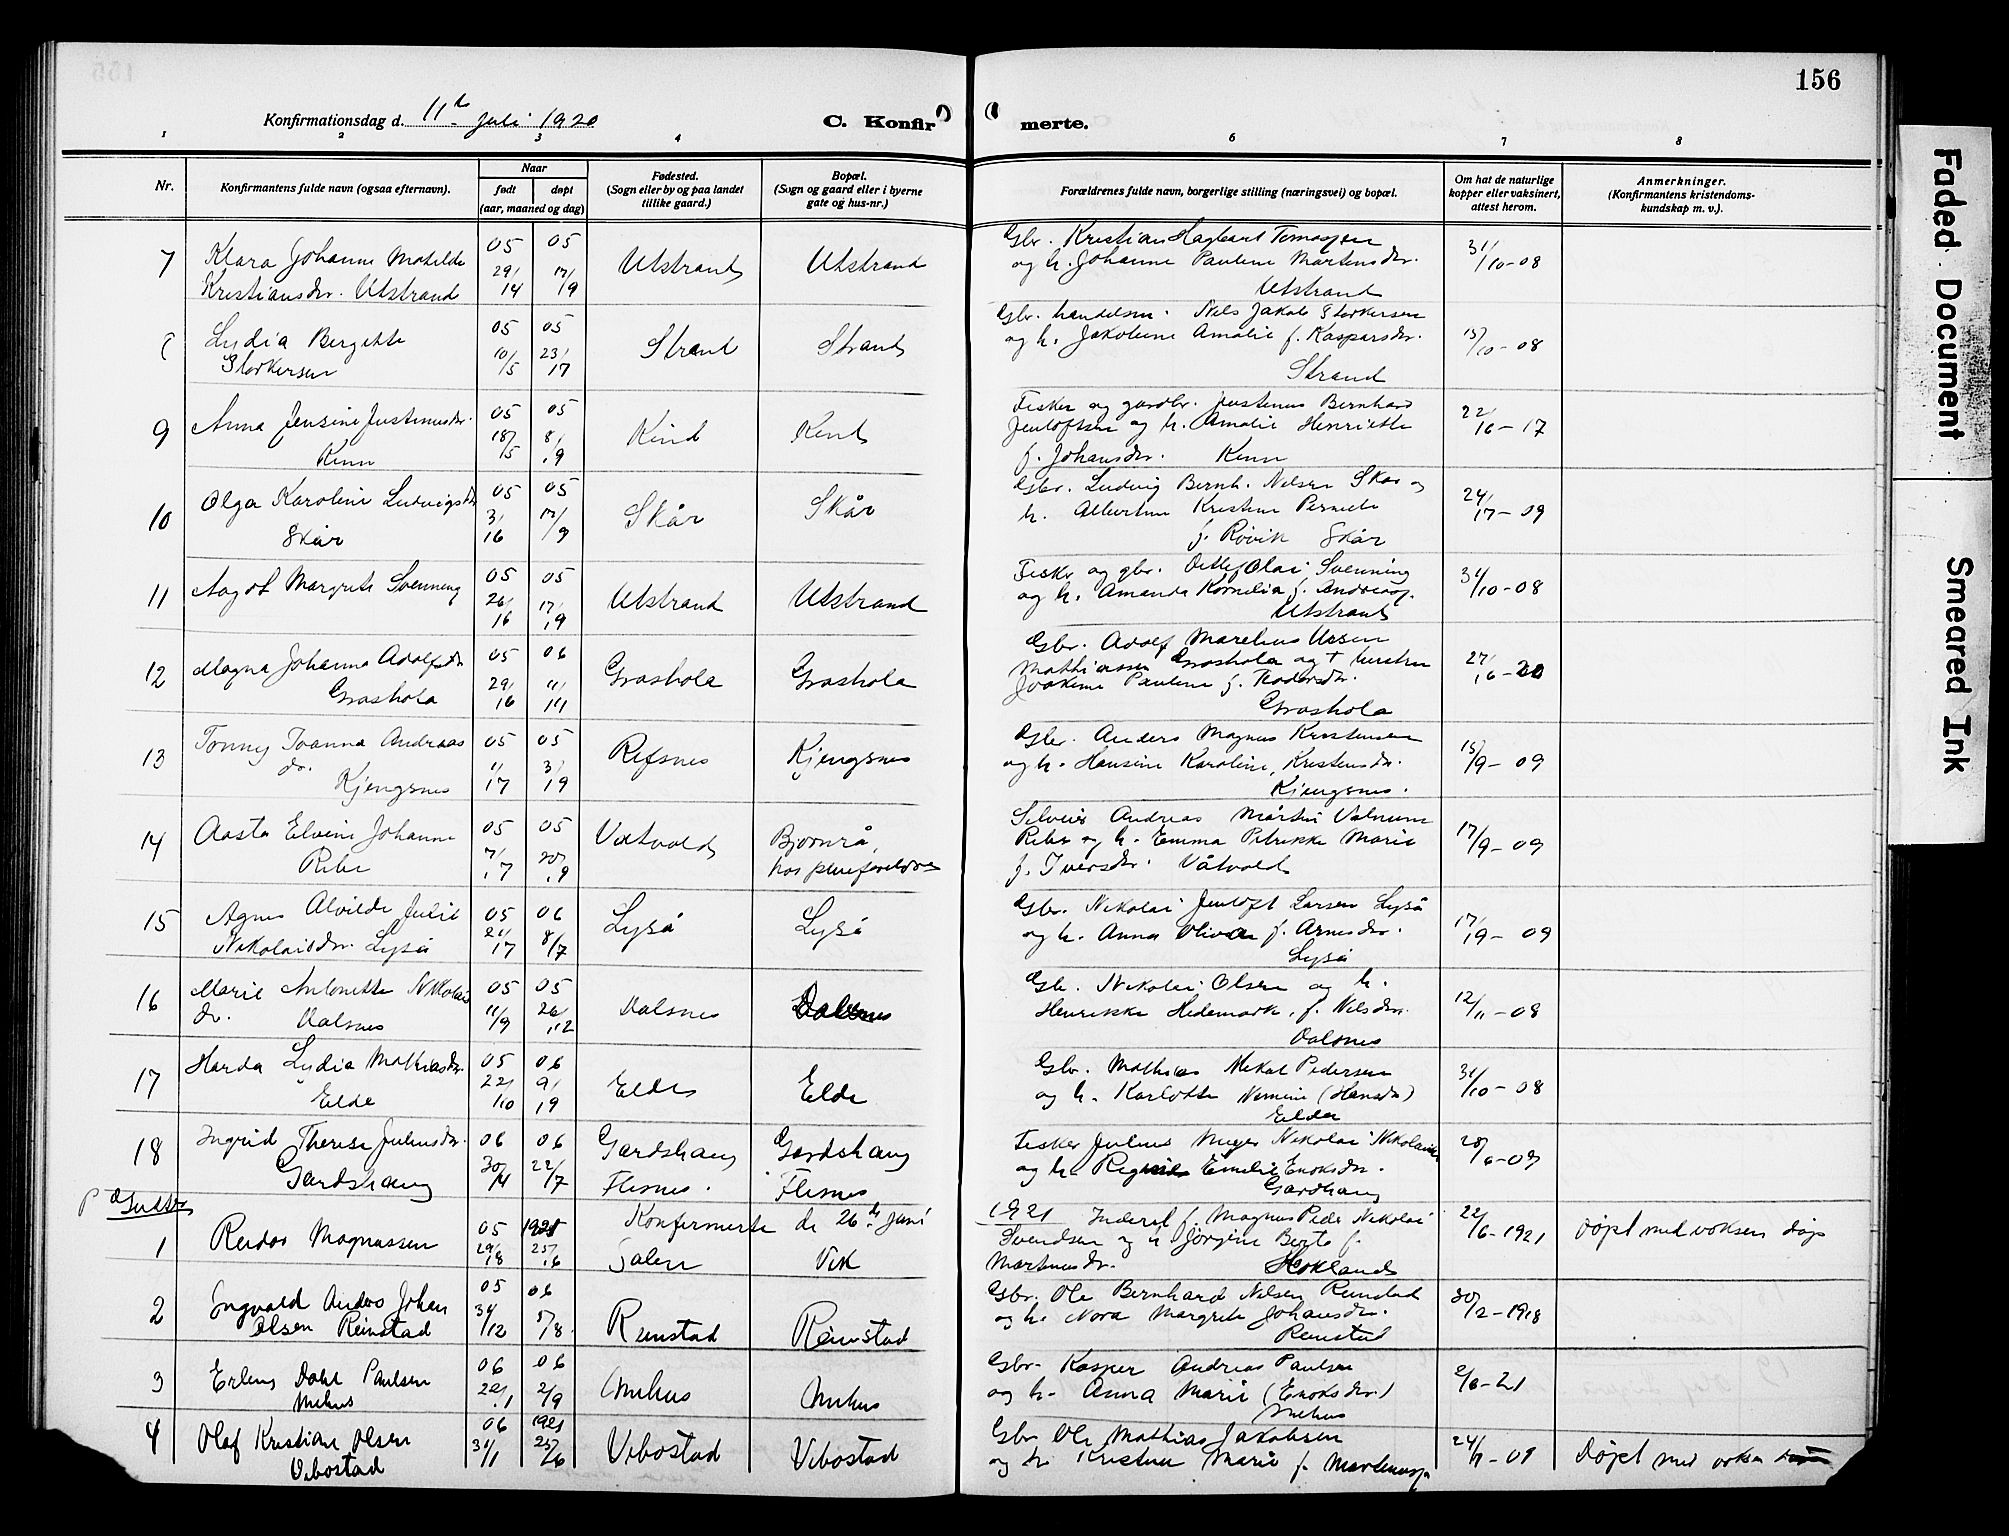 156
Konfirmationsdag d. 11te juli 1920
C. Konfir
merte.
1 2 3 4 6 7 8
Nr.
Konfirmantens fulde navn (ogsaa efternavn).
Naar
født
døpt
(aar, maaned og dag)
Fødested.
(Sogn eller by og paa landet
tillike gaard.)
Bopæl.
(Sogn og gaard eller i byerne
gate og hus-nr.)
Forældrenes fulde navn, borgerlige stilling (næringsvei) og bopæl.
Om hat de naturlige
kopper eller vaksinert,
attest herom.
Anmerkninger.
(Konfirmantens kristendoms-
kundskap m. v.).
7 Klara Johanne Matilde
Kristiansdr. Utstrand
05 29/14
05 17/9
Utstrand
Utstrand
Gbr. Kristian Hagbart Tomassen
og h. Johanne Pauline Martensdr.
Utstrand
31/10-08
Lydia Bergitte
Storkersen
05 10/5
05 23/17
Strand
Strand
Gbr. handelsm. Nils Jakob Storkersen
og h. Jakobine Amalie f. Kaspersdr.
Strand
15/10-08
9 Anna Jensine Justinusdr.
Kinn
05 18/5
05 8/9
Kind
Kind
Fisker og gardbr. Justinus Bernhard
Jentoftsen og h. Amalie Henriette
f. Johansdr. Kinn
22/16-17
10 Olga Karoline Ludvigsdr
Skår
05 3/16
05 17/9
Skår
Skår
Gbr. Ludvig Bernh. Nilsen Skar og
h. Albertine Kristine Pernele
f. Røvik Skår
24/17-09
11 Aagot Margrete Svenning
05 26/16
05 17/9
Utstrand
Utstrand
Fisker og gbr. Ditlef Olai Svenning
og h. Amanda Kornelia f. Andreass.
Utstrand
31/10-08
12 Magna Johanna Adolfsdr
Grashola
05 29/16
06 11/11
Grashola
Grashola
Gbr. Adolf Marelius
Mathiassen Grashola og † hustru
Joakime Pauline f. Teodorsdr.
Grashola
27/16-20
13 Tonny Joanna Andreas
dr.
Kjengsnes
05 11/17
05 3/19
Refsnes
Kjengsnes
Gbr. Anders Magnus Kristensen
og h. Hansine Karoline, Kristensdr.
Kjengsnes.
15/9-09
14 Aasta Elvine Johanne
Ribe
05 7/7
05 20/9
Vatvold
Bjørnrå,
hos pleieforeldre
Selveier Andreas Martin Valnum
Ribe og h. Emma Petrikke Marie
f. Iversdr. Våtvold
17/9-09
15 Agnes Alvilde Julie
Nikolaisdr. Lyså
05 21/17
06 8/7
Lyså
Lyså
Gbr. Nikolai Jentoft Larsen Lyså
og h. Anna Olivia f. Arnesdr.
Lyså
17/19-09
16 Marie Antonette Nikolais
dr. Dalsnes
05 11/9
05 26/12
Dalsnes
Dalsnes
Gbr. Nikolai Olsen og h.
Henrikke Hedemark, f. Nilsdr.
Dalsnes
12/11-08
17 Harda Lydia Mathiasdr.
Elde
05 22/10
06 9/19
Elde
Elde
Gbr. Mathias Mikal Pedersen
og h. Karlotte Nemine (Hansdr)
Elde
31/10-08
18 Ingrid Therese Juliusdr.
Gardshaug
06 30/4
06 22/7
Gardshaug
Flesnes.
Gardshaug
Flesnes
Fisker Julius Meyer Nikolai Nikolaisen
og h. Regine Emilie Enoksdr.
Gardhaug
28/6-09
Gutter
Konfirmerte de 26de juni
1921
1 Reidar Magnussen
05 29/8
1921 25/6
Salen
Vik
Inderst f. Magnus Peder Nikolai
Svendsen og h Jørgine Berte f.
Martinusdr. Hokland
22/6-1921
Døpt med voksen dåp
2 Ingvald Anders Johan
Olsen Reinstad
05 31/12
06 5/8
Reinstad
Reinstad
Gbr. Ole Bernhard Nilsen Reinstad
og h. Nora Margrete Johansdr.
Reinstad
20/2-1918
3 Erling Dahl Paulsen
Melhus
06 22/1
06 2/9
Melhus
Melhus
Gbr. Kasper Andreas Paulsen
og h. Anna Marie (Enoksdr.)
Melhus
2/6-21
4 Olaf Kristian Olsen
Vebostad
06 31/1
1921 25/6
Vebostad
Vebostad
Gbr Ole Mathias Jakobsen
og h. Kristine Marie f.
Døpt med voksen
Faded Document
Smeared Ink